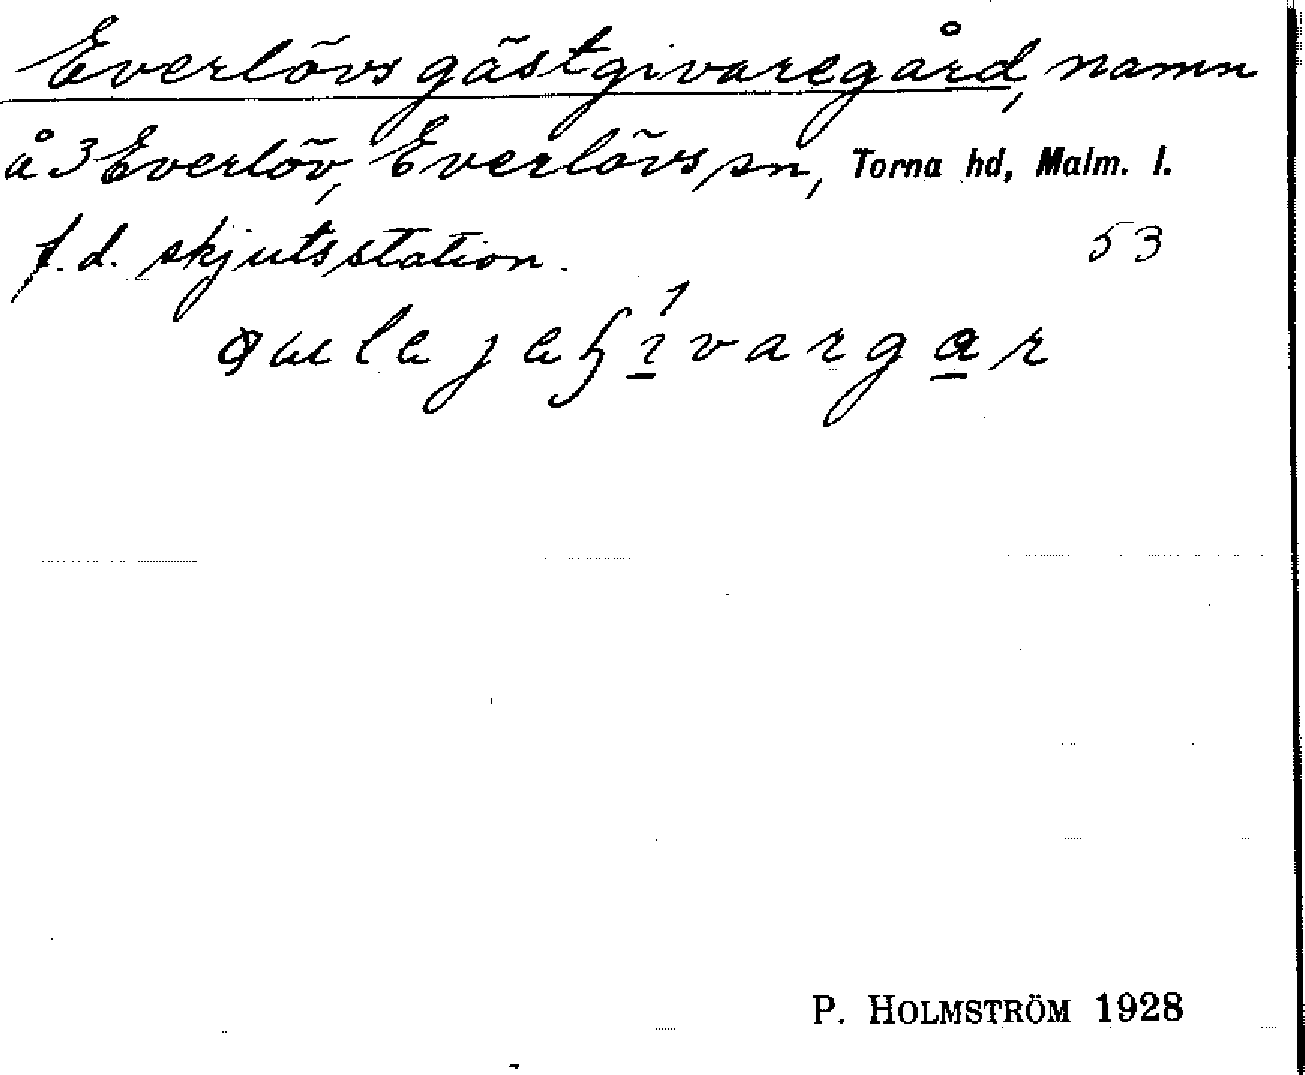 Everlövs gästgivaregård, namn
å 3 Everlöv, Everlövs sn, Torna hd, Malm. l.
f.d. skjutsstation.
53
P. HOLMSTRÖM 1928